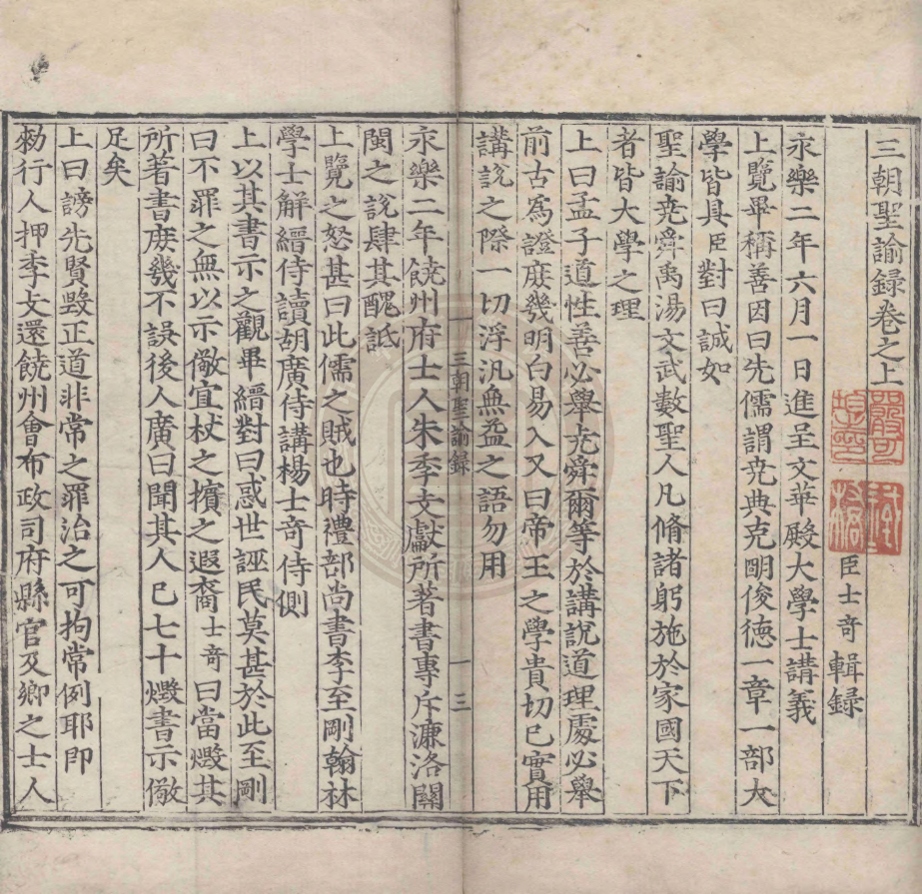 三朝聖諭録卷之上
臣士奇輯録
永樂二年六月一日進呈文華殿大學士講義
上覽畢稱善因曰先儒謂堯典克明俊德一章一部大
學皆具臣對曰誠如
聖諭堯舜禹湯文武數聖人凡脩諸躬施於家國天下
者皆大學之理
上曰孟子道性善必舉堯舜爾等於講說道理處必舉
前古爲證庻幾明白易入又曰帝王之學貴切已實用
講說之際一切浮汎無益之語勿用
永樂二年饒州府士人朱季文獻所著書專斥濂洛關
三朝聖諭録
一三
閩之說肆其醜詆
上覽之怒甚曰此儒之賊也時禮部尚書李至剛翰林
學士解縉侍讀胡廣侍講楊士奇侍側
上以其書示之觀畢縉對曰惑世誣民莫甚於此至剛
曰不罪之無以示儆宜杖之擯之遐裔士奇曰當燬其
所著書庻幾不誤後人廣曰聞其人已七十燬書示儆
足矣
上曰謗先賢毀正道非常之罪治之可拘常例耶即
勑行人押季文還饒州會布政司府縣官及鄉之士人